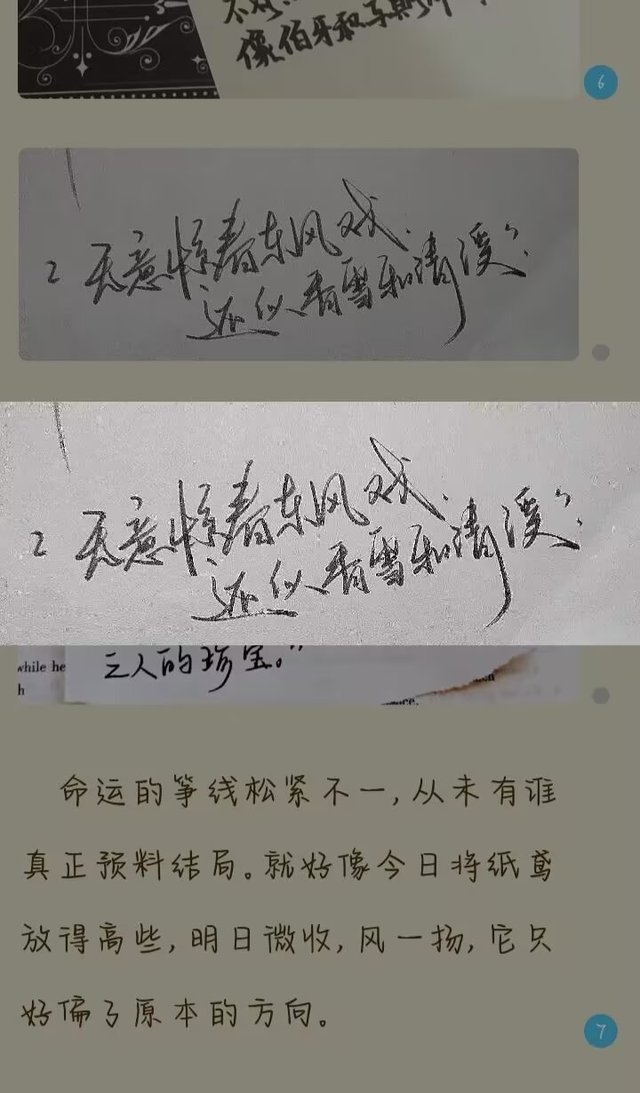 像伯牙和子期
6
无意惊春东风戏
还似雪和清溪”
无意惊春东风戏
还似雪和清溪”
while he
h
人的珍宝。”
命运的筝线松紧不一,从未有谁
真正预料结局。就好像今日将纸鸢
放得高些,明日微收,风一扬,它只
好偏了原本的方向。
7